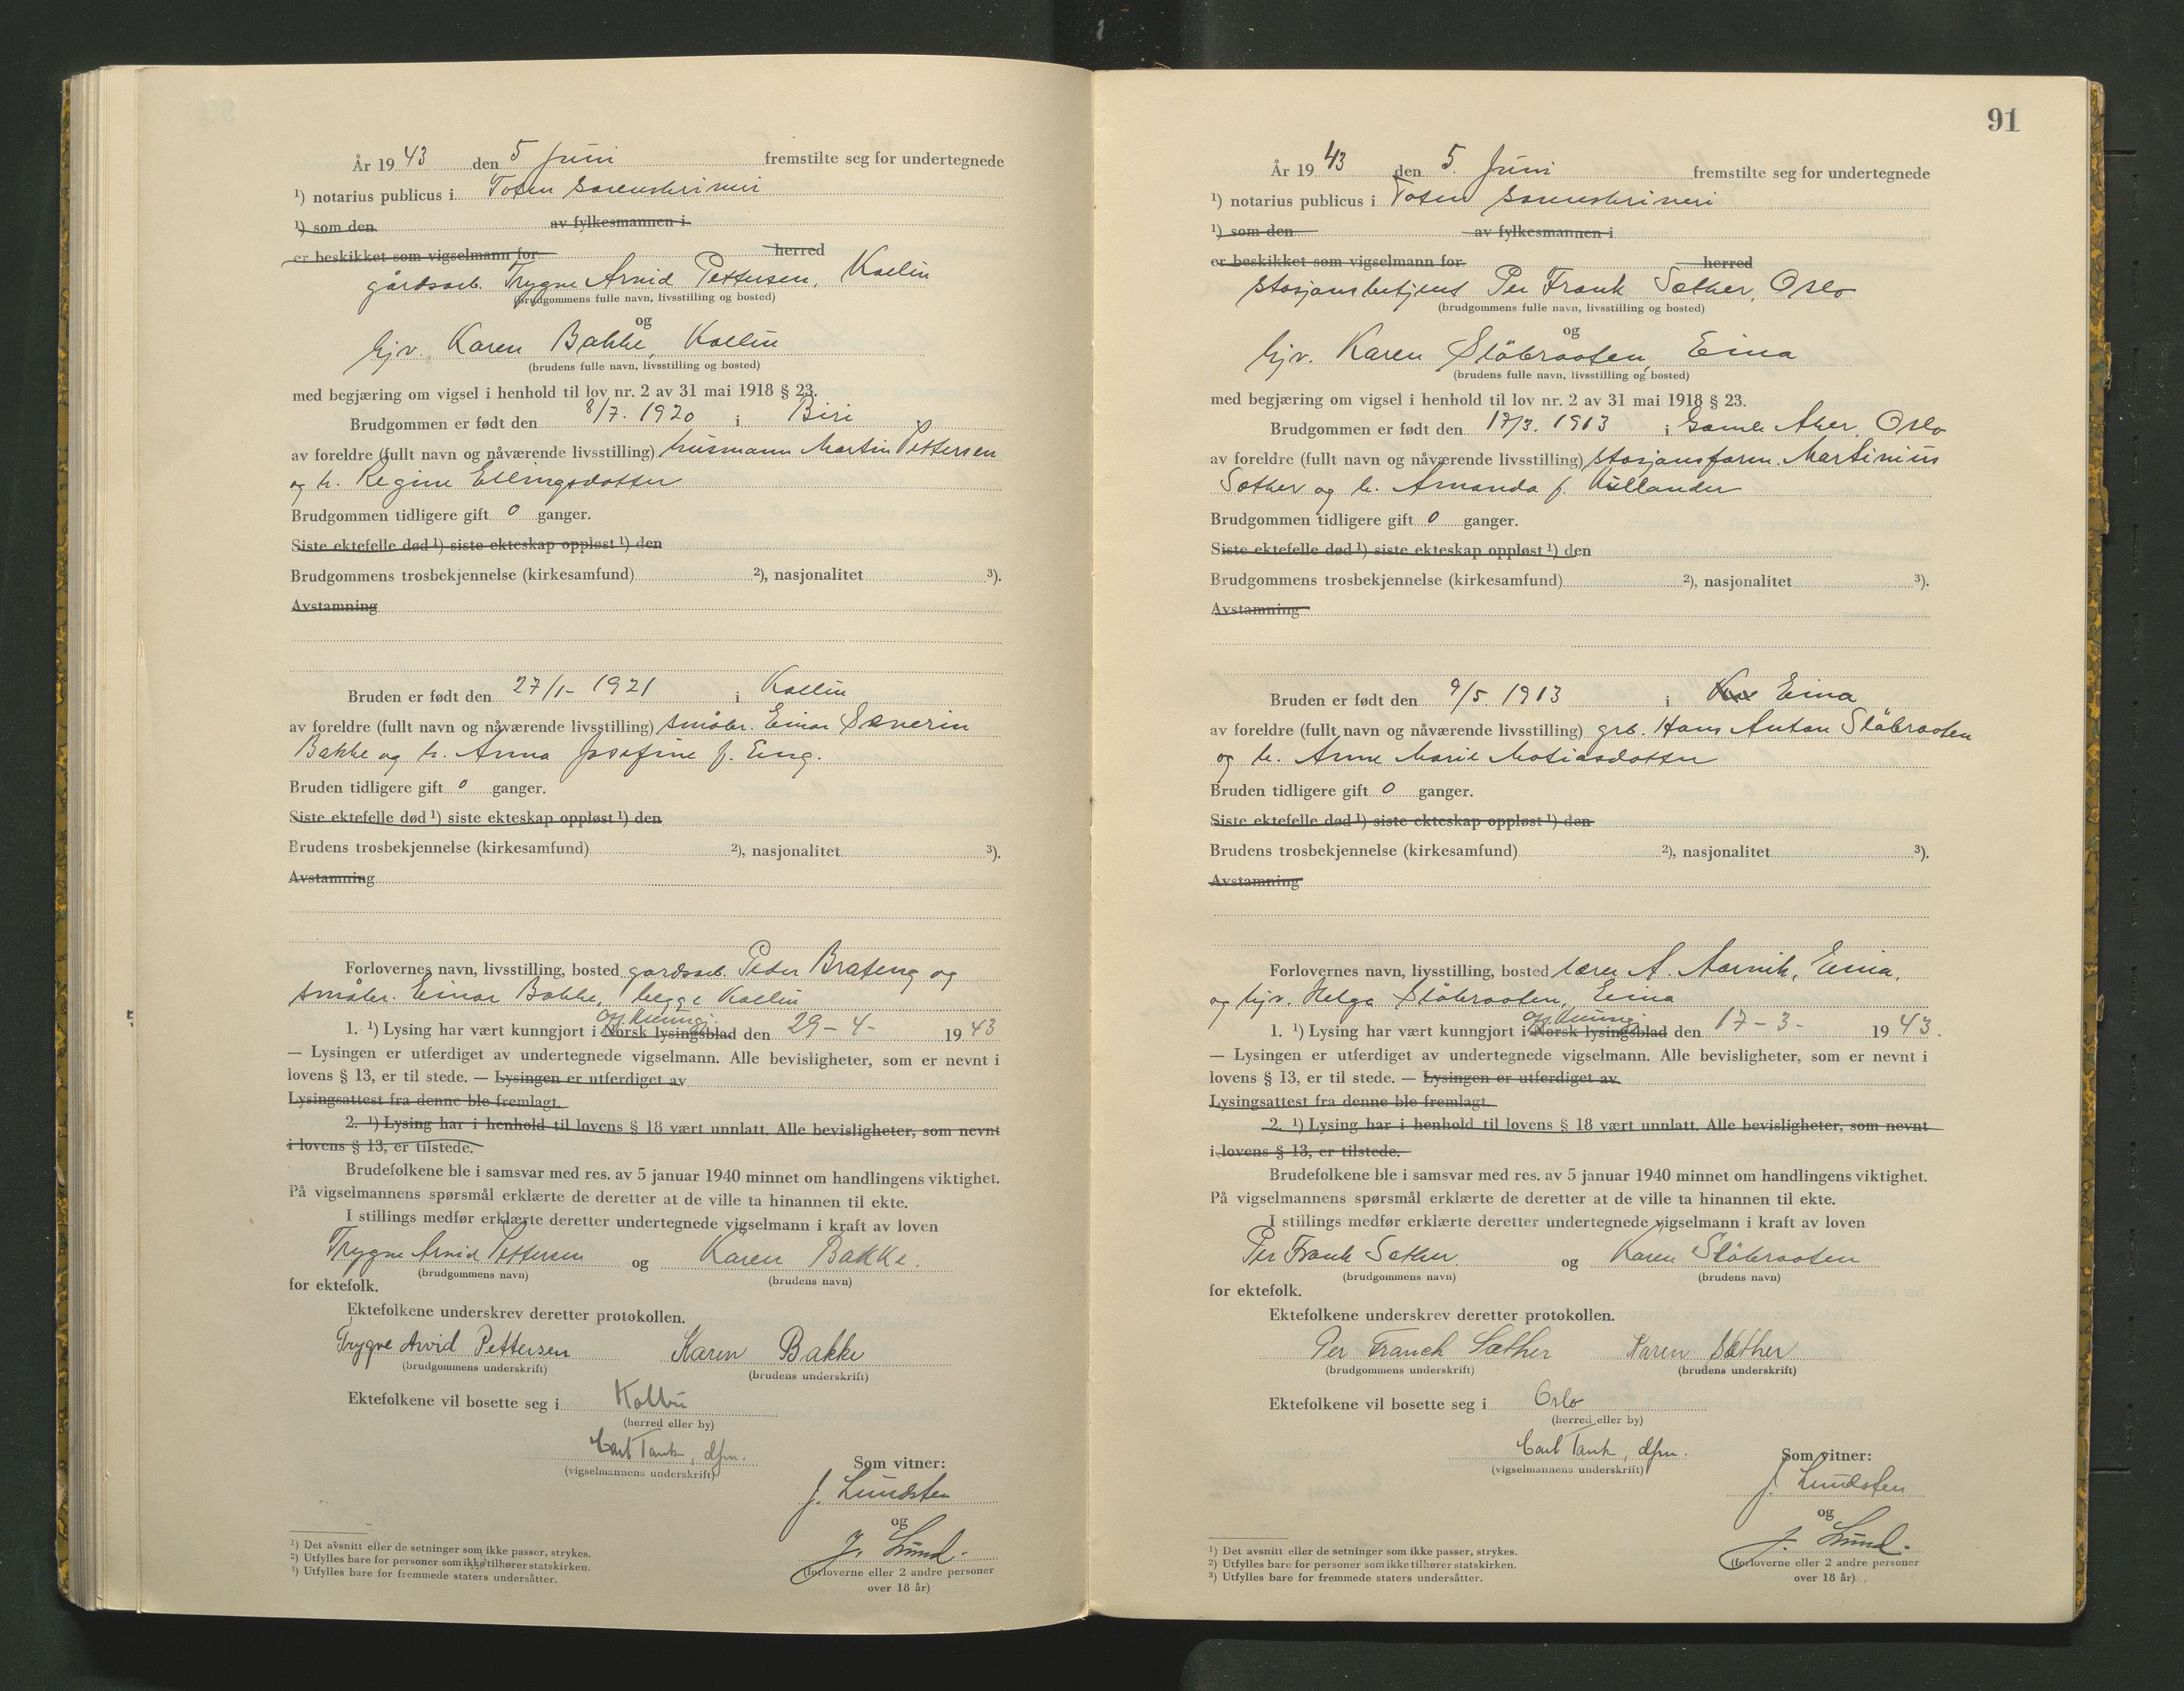 År 1943 den 5 Juni fremstilte seg for undertegnede
¹) notarius publicus i Toten sorenskriveri
¹) som den av fylkesmannen i
er beskikket som vigselmann for herred
gårdsarb. Trygve Arvid Pettersen, Kolbu
(brudgommens fulle navn, livsstilling og bosted)
og
hjv. Karen Bakke, Kolbu
(brudens fulle navn, livsstilling og bosted)
med begjæring om vigsel i henhold til lov nr. 2 av 31 mai 1918 § 23.
Brudgommen er født den 8/7. 1920 i Biri
av foreldre (fullt navn og nåværende livsstilling) husmann Martin Pettersen
og h. Regine Ellingsdatter
Brudgommen tidligere gift 0 ganger.
Siste ektefelle død ¹) siste ekteskap oppløst ¹) den
Brudgommens trosbekjennelse (kirkesamfund) ²), nasjonalitet ³).
Avstamning
Bruden er født den 27/1- 1921 i Kolbu
av foreldre (fullt navn og nåværende livsstilling) småbr. Einar Severin
Bakke og h. Anna Josefine f. Eng.
Bruden tidligere gift 0 ganger.
Siste ektefelle død ¹) siste ekteskap oppløst ¹) den
Brudens trosbekjennelse (kirkesamfund) ²), nasjonalitet ³).
Avstamning
Forlovernes navn, livsstilling, bosted gardsarb. Peder Brateng og
småbr. Einar Bakke, begge Kolbu
off. kunngj.
1. ¹) Lysing har vært kunngjort i Norsk lysingsblad den 29-4- 1943
— Lysingen er utferdiget av undertegnede vigselmann. Alle bevisligheter, som er nevnt i
lovens § 13, er til stede. — Lysingen er utferdiget av
Lysingsattest fra denne ble fremlagt.
2. ¹) Lysing har i henhold til lovens § 18 vært unnlatt. Alle bevisligheter, som nevnt
i lovens § 13, er tilstede.
Brudefolkene ble i samsvar med res. av 5 januar 1940 minnet om handlingens viktighet.
På vigselmannens spørsmål erklærte de deretter at de ville ta hinannen til ekte.
I stillings medfør erklærte deretter undertegnede vigselmann i kraft av loven
Trygve Arvid Pettersen og Karen Bakke.
(brudgommens navn) (brudens navn)
for ektefolk.
Ektefolkene underskrev deretter protokollen.
Trygve Arvid Pettersen Karen Bakke
(brudgommens underskrift) (brudens underskrift)
Ektefolkene vil bosette seg i Kolbu
(herred eller by)
Carl Tank, dfm.
(vigselmannens underskrift)
Som vitner:
J. Lundsten
og
J. Lund.
(forloverne eller 2 andre personer
over 18 år)
¹) Det avsnitt eller de setninger som ikke passer, strykes.
²) Utfylles bare for personer som ikke tilhører statskirken.
³) Utfylles bare for fremmede staters undersåtter.
91
År 1943 den 5. Juni fremstilte seg for undertegnede
¹) notarius publicus i Toten sorenskriveri
¹) som den av fylkesmannen i
er beskikket som vigselmann for herred
stasjonsbetjent Per Frank Sæther, Oslo
(brudgommens fulle navn, livsstilling og bosted)
og
hjv. Karen Slåbraaten, Eina
(brudens fulle navn, livsstilling og bosted)
med begjæring om vigsel i henhold til lov nr. 2 av 31 mai 1918 § 23.
Brudgommen er født den 17/3. 1913 i Gamle Aker, Oslo
av foreldre (fullt navn og nåværende livsstilling) stasjonsform. Martinius
Sæther og h. Amanda f. Küllander
Brudgommen tidligere gift 0 ganger.
Siste ektefelle død ¹) siste ekteskap oppløst ¹) den
Brudgommens trosbekjennelse (kirkesamfund) ²), nasjonalitet ³).
Avstamning
Bruden er født den 9/5. 1913 i Eina
av foreldre (fullt navn og nåværende livsstilling) grb. Hans Anton Slåbraaten
og h. Anne Marie Matiasdatter
Bruden tidligere gift 0 ganger.
Siste ektefelle død ¹) siste ekteskap oppløst ¹) den
Brudens trosbekjennelse (kirkesamfund) ²), nasjonalitet ³).
Avstamning
Forlovernes navn, livsstilling, bosted lærer A. Aarnik, Eina,
og hjv. Helga Slåbraaten, Eina
off. kunngj.
1. ¹) Lysing har vært kunngjort i Norsk lysingsblad den 17-3- 1943.
— Lysingen er utferdiget av undertegnede vigselmann. Alle bevisligheter, som er nevnt i
lovens § 13, er til stede. — Lysingen er utferdiget av
Lysingsattest fra denne ble fremlagt.
2. ¹) Lysing har i henhold til lovens § 18 vært unnlatt. Alle bevisligheter, som nevnt
i lovens § 13, er tilstede.
Brudefolkene ble i samsvar med res. av 5 januar 1940 minnet om handlingens viktighet.
På vigselmannens spørsmål erklærte de deretter at de ville ta hinannen til ekte.
I stillings medfør erklærte deretter undertegnede vigselmann i kraft av loven
Per Frank Sæther. og Karen Slåbraaten
(brudgommens navn) (brudens navn)
for ektefolk.
Ektefolkene underskrev deretter protokollen.
Per Franck Sæther Karen Sæther
(brudgommens underskrift) (brudens underskrift)
Ektefolkene vil bosette seg i Oslo
(herred eller by)
Carl Tank, dfm.
(vigselmannens underskrift)
Som vitner:
J. Lundsten
og
J. Lund.
(forloverne eller 2 andre personer
over 18 år)
¹) Det avsnitt eller de setninger som ikke passer, strykes.
²) Utfylles bare for personer som ikke tilhører statskirken.
³) Utfylles bare for fremmede staters undersåtter.